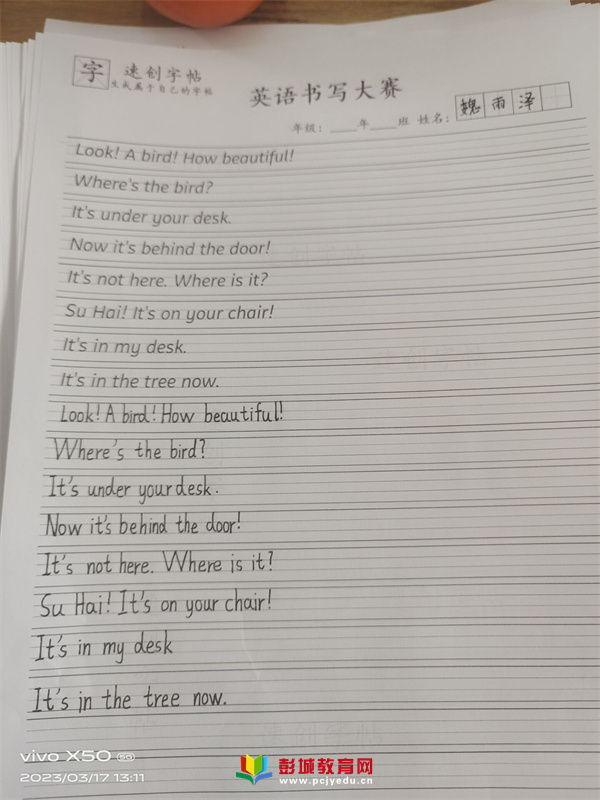 字 速创字帖
生成属于自己的字帖
英语书写大赛
年级：____年____班 姓名：魏雨泽
Look! A bird! How beautiful!
Where's the bird?
It's under your desk.
Now it's behind the door!
It's not here. Where is it?
Su Hai! It's on your chair!
It's in my desk.
It's in the tree now.
Look! A bird! How beautiful!
Where's the bird?
It's under your desk.
Now it's behind the door!
It's not here. Where is it?
Su Hai! It's on your chair!
It's in my desk
It's in the tree now.
vivo X50 5G
2023/03/17 13:11
彭城教育网
www.pcjyedu.cn